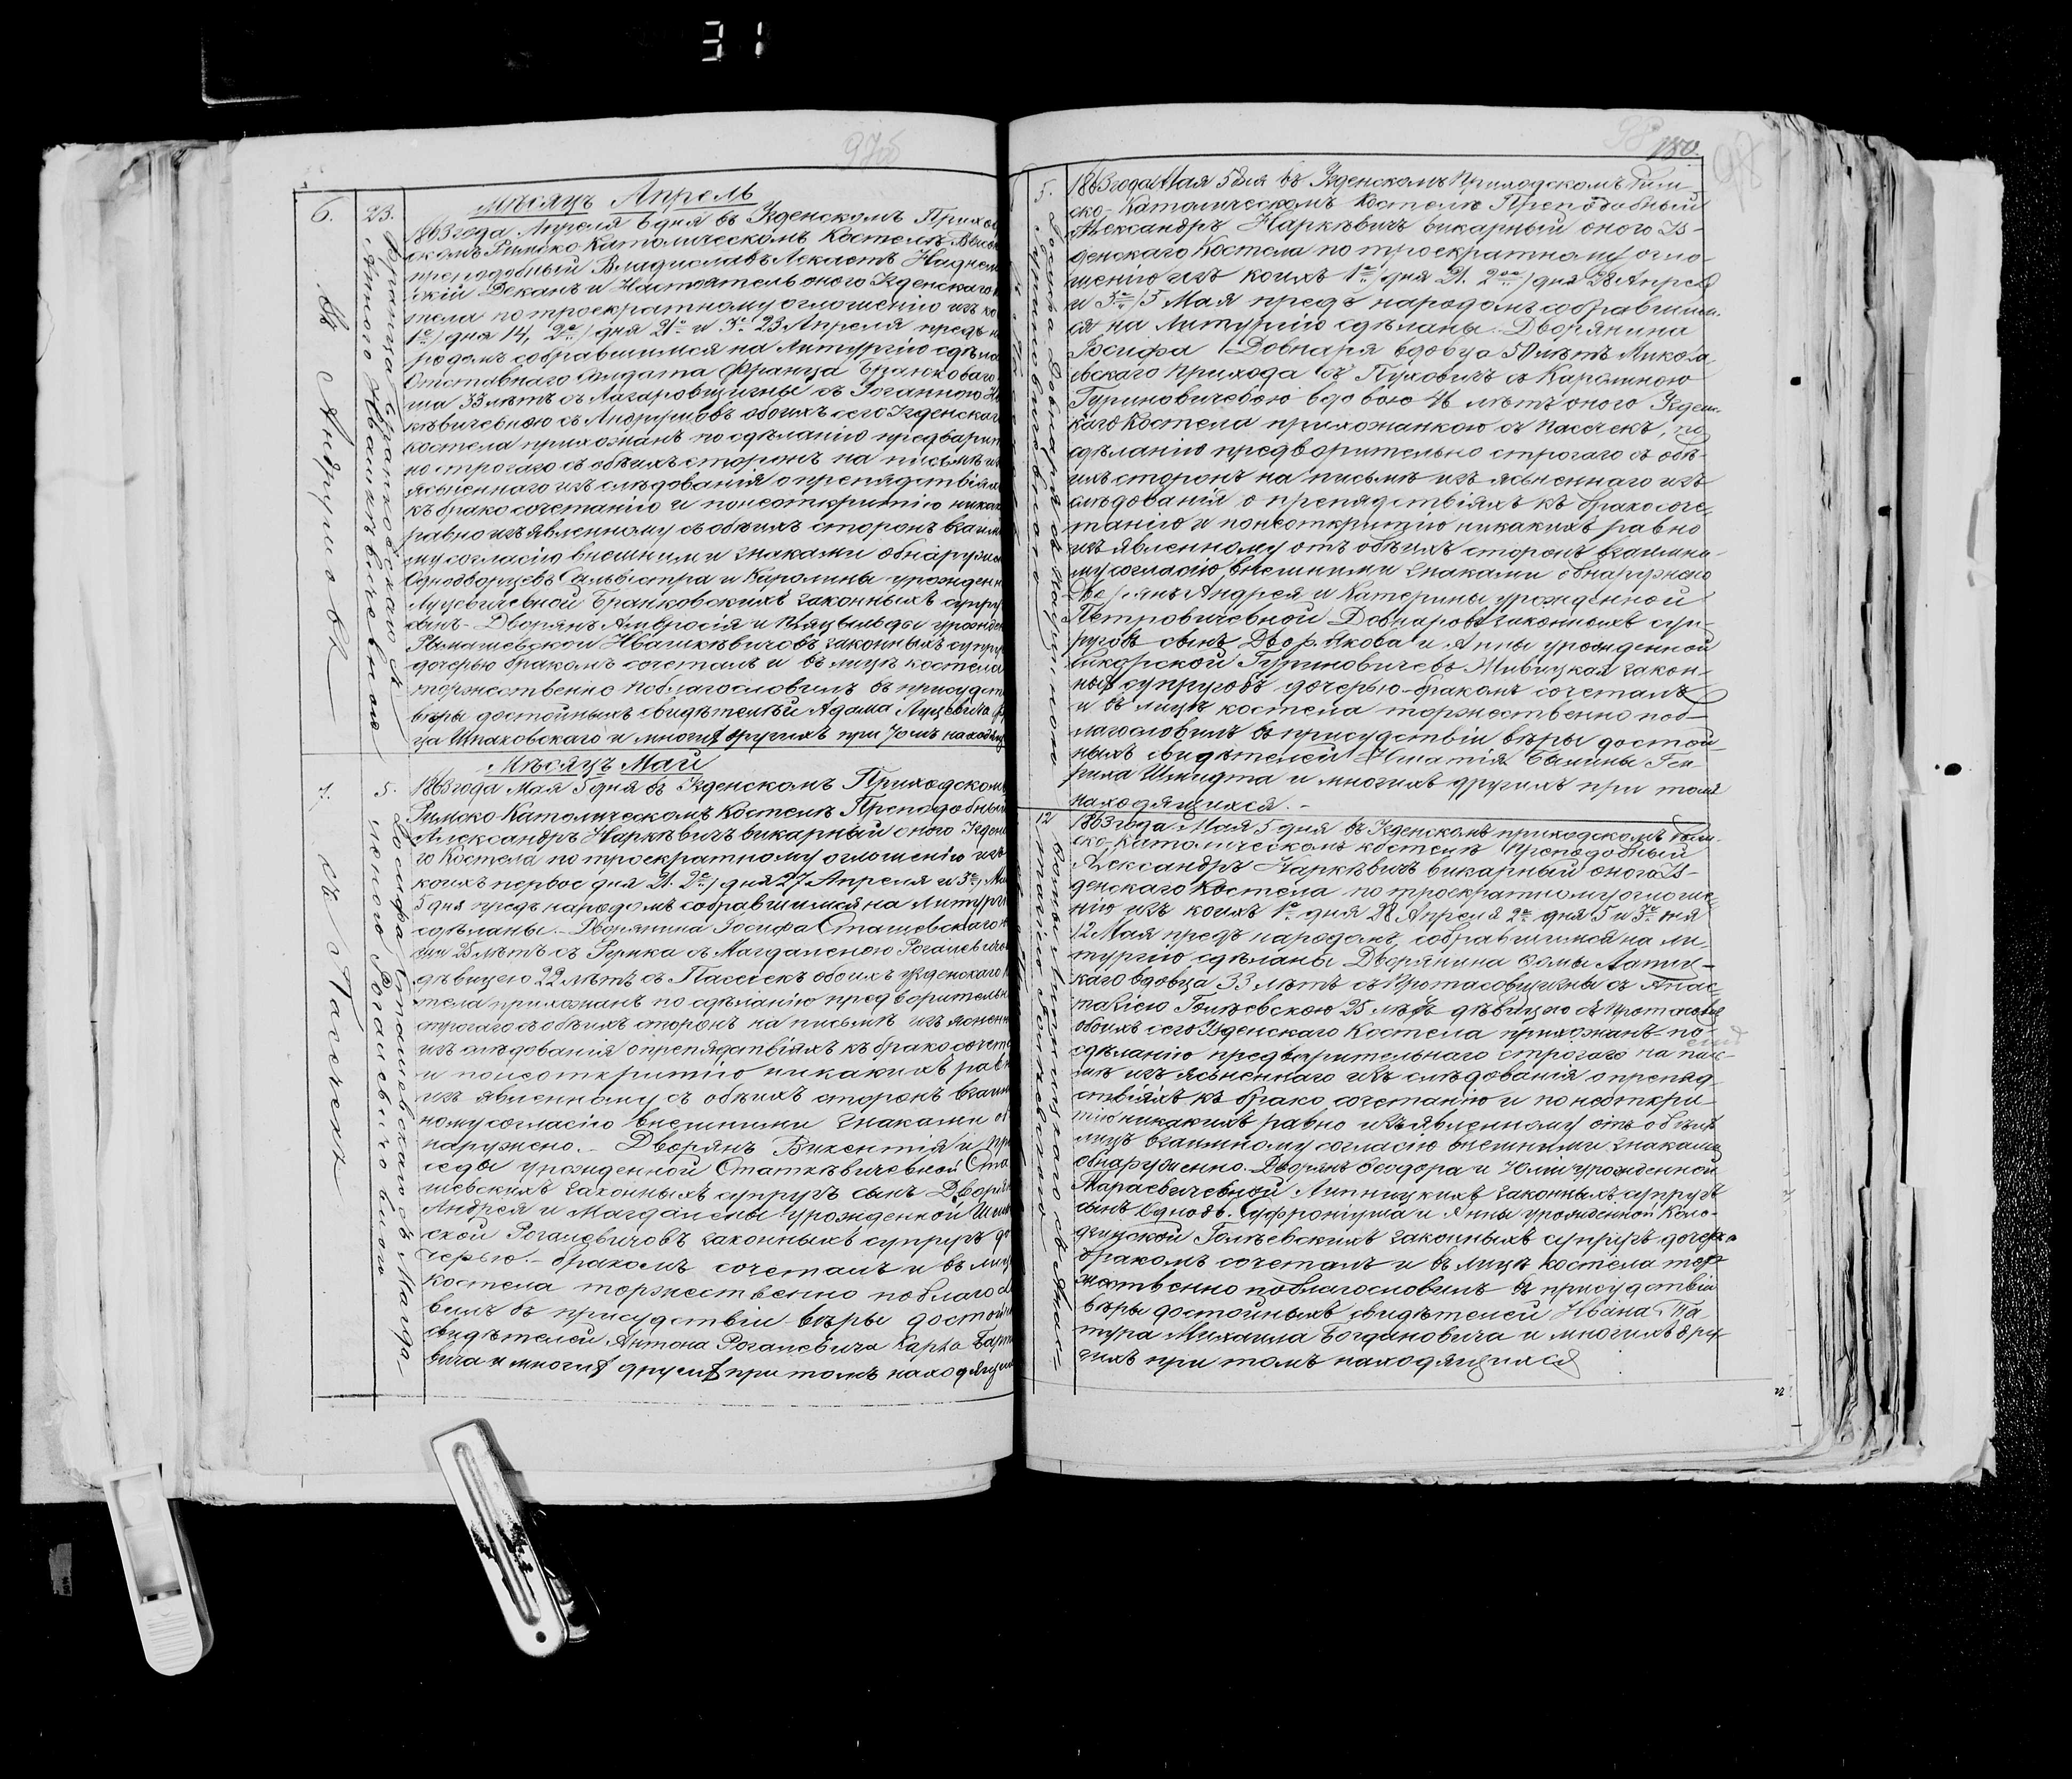 31
97об
Мѣсяцъ Апрель
6.
23.
Франца Бранковскаго съ
Анною Ивашкѣвичевною
въ Андрушовк
1863 года Апреля 6 дня въ Узденскомъ Приход
скомъ Римско-Католическомъ Костелѣ
преподобный Владиславъ
Деканъ и Настоятель оного Узденскаго
тела по троекратному оглошенію изъ ко
1е/ дня 14, 2е/ дня 21 и 3е/ 23 Апреля предъ н
родомъ собравшимся на Литургію сдѣла
Отставнаго Солдата Франца Бранковаго
ша 33 лѣтъ съ Лагаровщизны съ Іоганною
кѣвичевною съ Андрушовъ обоихъ сего Узденскаг
костела прихожанъ по сдѣланію предварит
но строгаго съ обѣихъ сторонъ на письмѣ из
ясненнаго изъ слѣдованія о препядствіях
къ брако сочетанію и понеоткритію никак
равно изъ явленному съ обѣихъ сторонъ взаим
му согласію внешними знаками обнаруже
Однодворцевъ Сильвестра и Каролины урожденн
Луцевичевной Бранковскихъ законныхъ супру
сынъ - Дворянъ Амвросія и урожден
Рымашевской Ивашкѣвичовъ законныхъ супру
дочерью бракомъ сочеталъ и въ лицѣ костела
торжественно поблагословилъ въ присудст
вѣры достойныхъ свидѣтелей Адама Луцевича
ца Шпаковскаго и многихъ другихъ при томъ находящ
Мѣсяцъ Май
7.
5.
Іосифа Сташевскаго съ Магда-
леною Рогалевичовною
съ Пасѣчекъ
1863 года Мая 5 дня въ Узденскомъ Приходском
Римско-Католическомъ Костелѣ Преподобный
Александръ Наркѣвичъ викарный оного Узденс
го Костела по троекратному оглошенію изъ
коихъ первое дня 21. 2е/ дня 27 Апреля и 3е/ Ма
5 дня предъ народомъ собравшимся на Литург
сдѣланы. Дворянина Іосифа Сташевскаго
25 лѣтъ съ съ Магдаленою Рогалевичо
дѣвицею 22 лѣтъ съ Пасѣчекъ обоихъ Узденскаго
тела прихожанъ по сдѣланію предворительн
строгаго съ обѣихъ сторонъ на письмѣ изъ ясненн
изъ слѣдованія о препядствіяхъ къ брако сочет
и понеоткритію никакихъ равн
изъ явленному съ обѣихъ сторонъ взаим
ному согласію внешними знаками об
наружено. Дворянъ Викентія и
урожденной Статкѣвичевной Ста
шевскихъ законныхъ супругъ сынъ Дворян
Андрея и Магдалены урожденной
ской Рогалевичовъ законныхъ супругъ до
черью. бракомъ сочеталъ и въ лиц
костела торжественно поблагосло
вилъ въ присудствіи вѣры достойн
свидѣтелей Антона Рогалевича Карла
вича и многихъ другихъ при томъ находящи
98
180.
5.
Іосифа Довнара съ Каролиною
Гуриновичевою
1863 года Мая 5 дня въ Узденскомъ Приходскомъ Рим-
ско-Католическомъ Костелѣ Преподобный
Александръ Наркѣвичъ викарный оного Уз-
денскаго Костела по троекратному огло-
шенію изъ коихъ 1е/ дня 21. 2ое/ дня 28 Апреля
и 3е/ 5 Мая предъ народомъ собравшим-
ся на Литургію сдѣланы. Дворянина
Іосифа Довнара вдовца 50 лѣтъ Микола-
евскаго прихода съ Пуховичъ съ Каролиною
Гуриновичевою вдовою 46 лѣтъ оного Узден-
каго Костела прихожанкою съ Пасѣчекъ, по
сдѣланію предворительно строгаго съ обѣ-
ихъ сторонъ на письмѣ изъ ясненнаго изъ
слѣдованія о препядствіяхъ къ брако соче-
танію и понеоткритію никакихъ равно
изъ явленному отъ обѣихъ сторонъ взаимно-
му согласію, внешними знаками обнаружено
Дворянъ Андрея и Катерины урожденной
Петровичевной Довнаровъ законныхъ суп-
руговъ сынъ Двор. Якова и Анны урожденной
Сикорской Гуриновичевъ закон-
ныхъ супруговъ дочерью-бракомъ сочеталъ
и въ лицѣ костела торжественно поб-
лагословилъ въ присудствіи вѣры достой-
ныхъ свидѣтелей Игнатія Ген-
риха Шмидта и многихъ другихъ при томъ
находящихся. -
12
1863 года Мая 5 дня въ Узденскомъ приходскомъ Рим-
ско-Католическомъ костелѣ Преподобный
Александръ Наркѣвичъ викарный оного Уз-
денскаго Костела по троекратному оглоше-
нію изъ коихъ 1е дня 28 Апреля 2е дня 5 и 3е дня
12 Мая предъ народомъ собравшимся на ли-
тургію сдѣланы Дворянина Фомы Липниц-
каго вдовца 33 лѣтъ съ Протасовщизны съ Анас-
тасіею Голѣевскою 25 лѣтъ дѣвицею съ
обоихъ сего Узденскаго Костела прихожанъ - по
сдѣланію предворительнаго строгаго на пись-
мѣ изъ ясненнаго изъ слѣдованія о препяд-
ствіяхъ къ брако сочетанію и понеоткри-
тію никакихъ равно изъявленному отъ обѣихъ
лицъ взаимному согласію внешними знаками
обнаруженно. Дворянъ Феодора и Юліи урожденной
Тарасевичевной Липницкихъ законныхъ супругъ
сынъ Однодв. Суфроніуша и Анны урожденной Коло-
дзинской Голѣевскихъ законныхъ супругъ дочерью
бракомъ сочеталъ и въ лицѣ костела тор-
жественно поблагословилъ въ присудствіи
вѣры достойныхъ свидѣтелей Ивана
Михаила Богдановича и многихъ дру-
гихъ при томъ находящихся